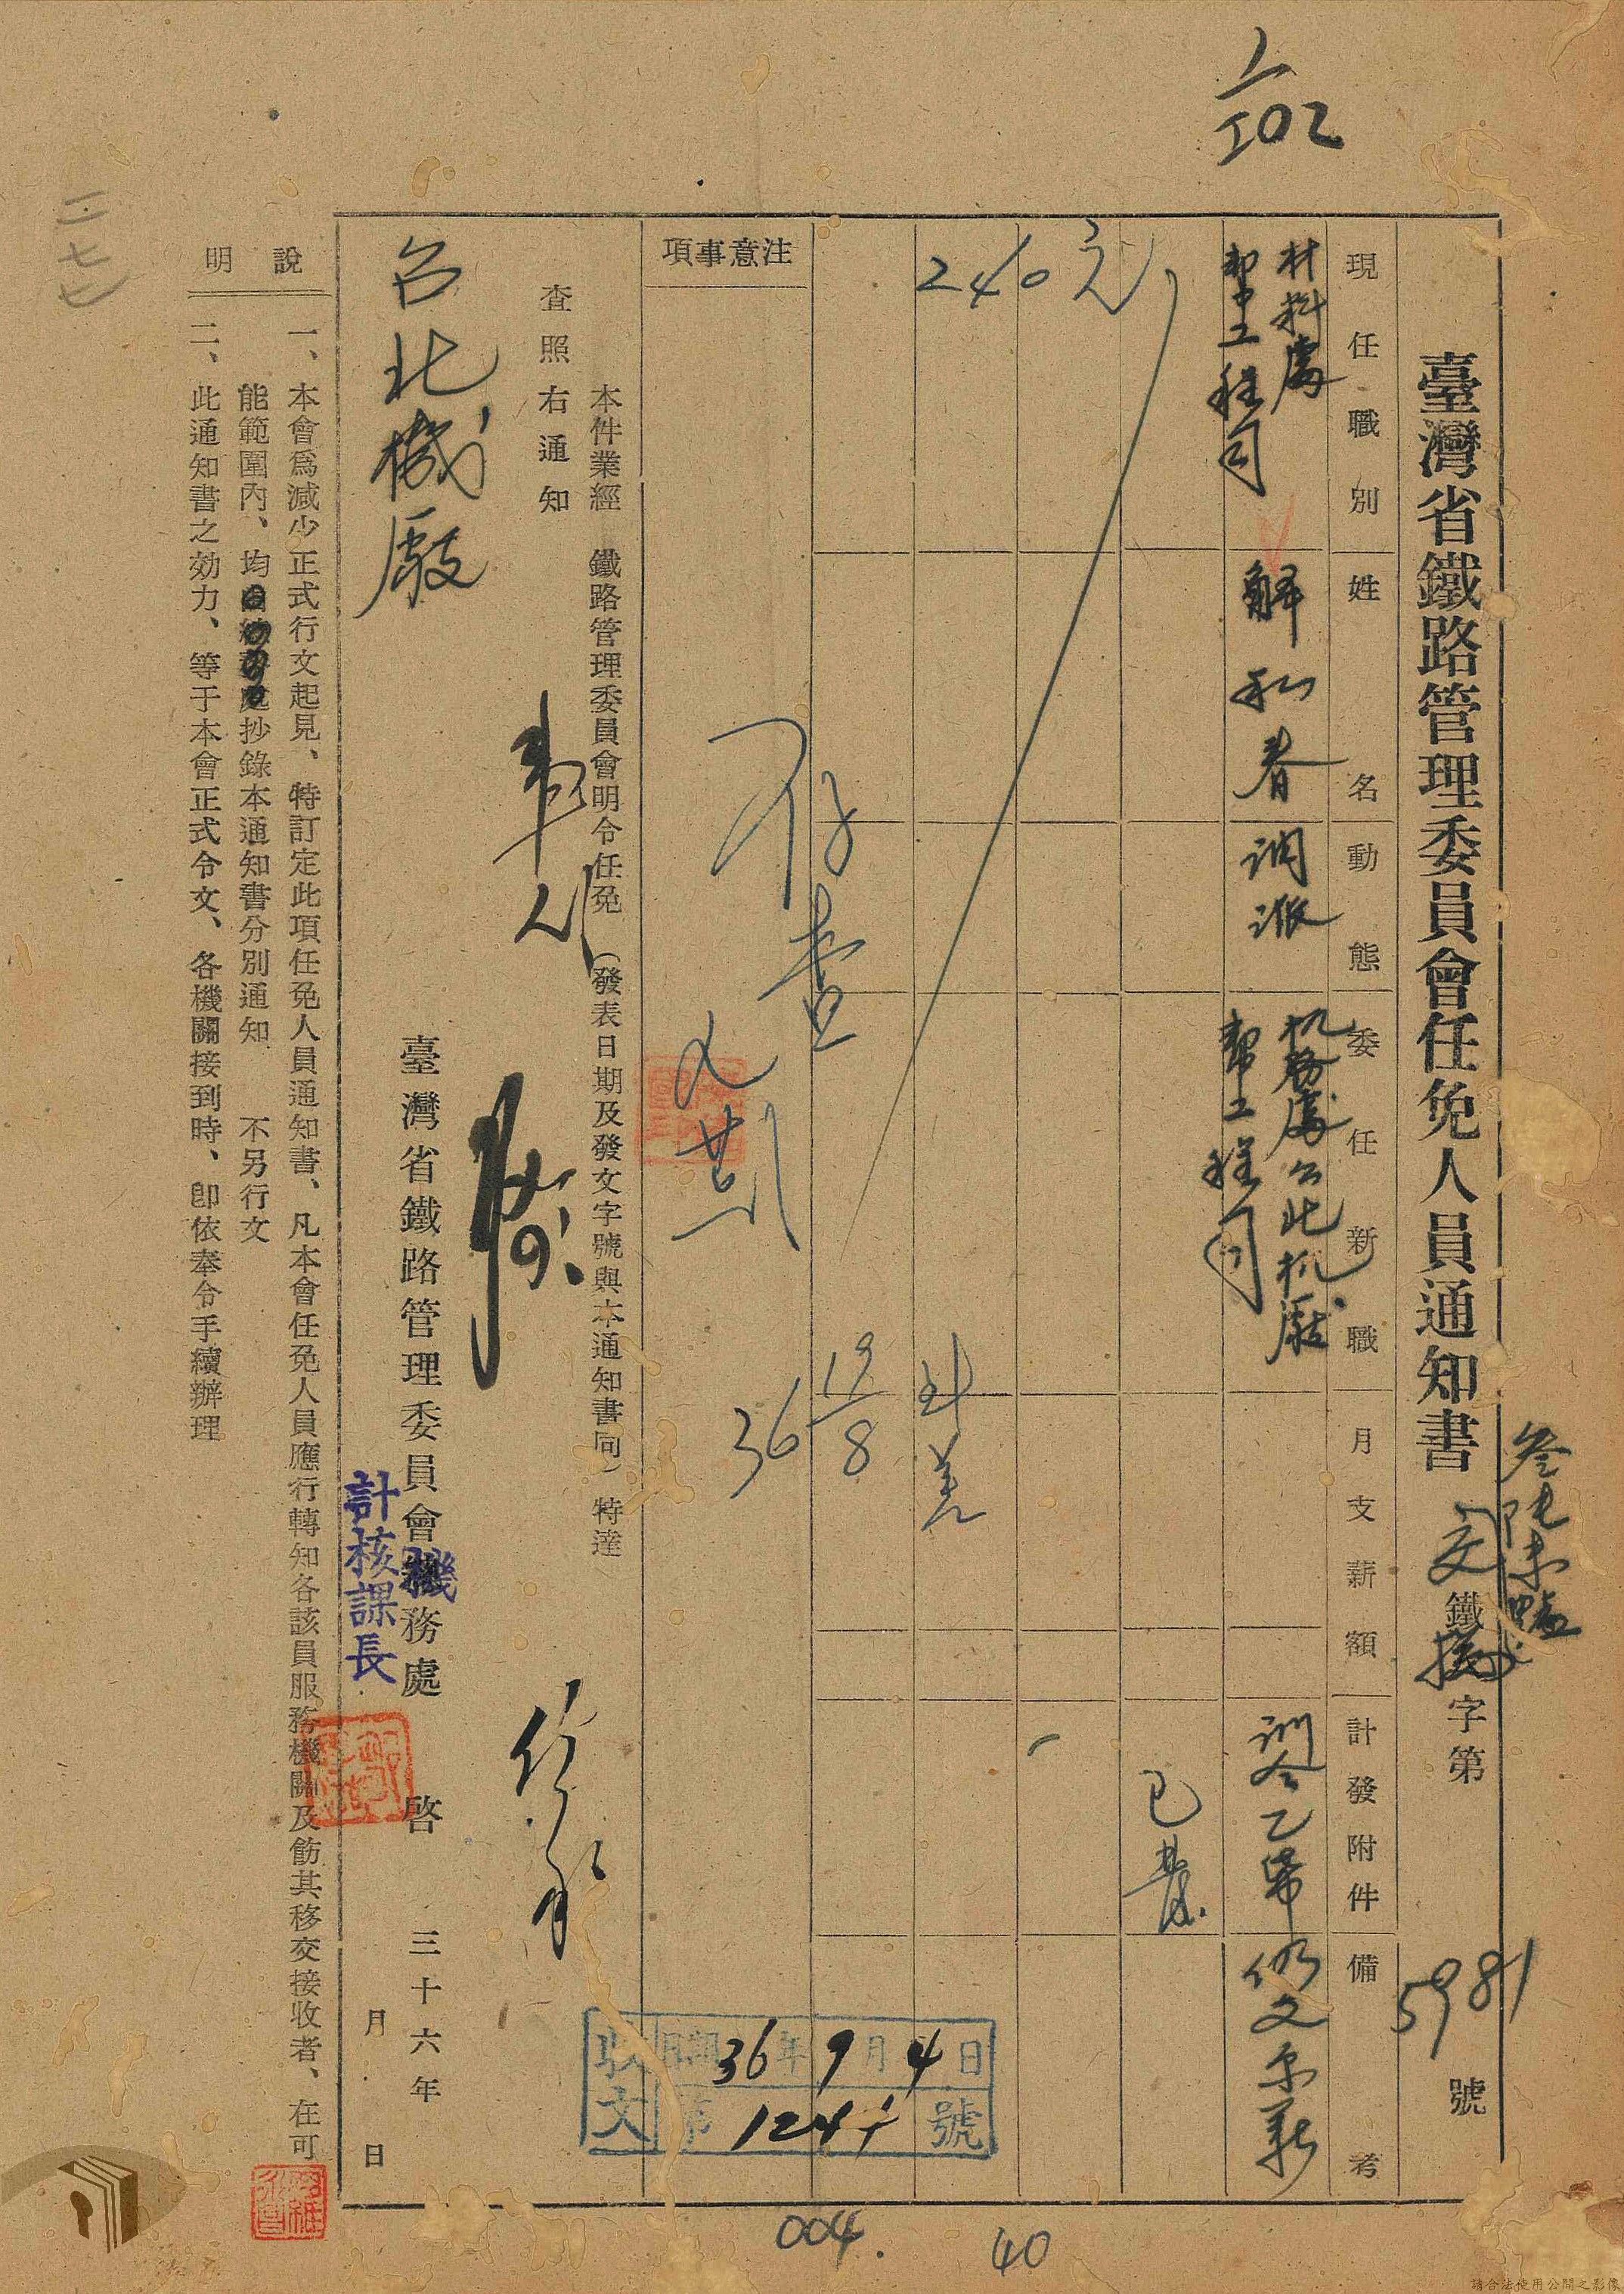 臺灣省鐵路管理委員會任免人員通知書 鐵 字第 5981 號
現任職別 姓名 動態 委任新職 月支薪額 計發附件 備考
材料處
幫工程司
解和春
調派
机務處台北机厰
幫工程司
訓令乙帋
仍支原薪
已發
240元
注意事項
存查
36 19/8
本件業經 鐵路管理委員會明令任免(發表日期及發文字號與本通知書同)特達
查照右通知
台北機厰
臺灣省鐵路管理委員會機務處 啓 三十六年
計核課長
月 日
說明
一、本會爲減少正式行文起見、特訂定此項任免人員通知書、凡本會任免人員應行轉知各該員服務機關及飭其移交接收者、在可
能範圍內、均 抄錄本通知書分別通知 不另行文
二、此通知書之効力、等于本會正式令文、各機關接到時、卽依奉令手續辦理
收文 日期 36年9月4日
第 號
I02
二七七
004.
40
請合法使用公開之影像